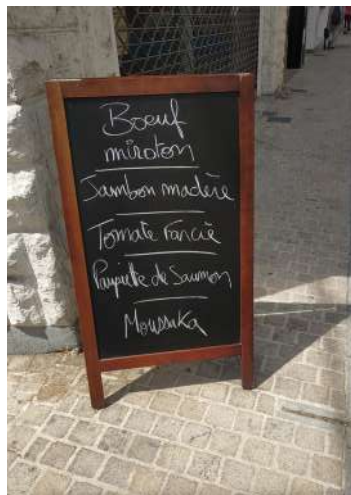 Boeuf
miroton
Jambon madère
Tomate Farcie
Paupiette de Saumon
Moussaka